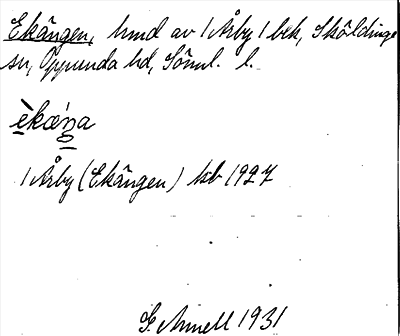 Ekängen, hmd av 1 Årby 1 bek, Sköldinge
sn, Oppunda hd, Söml. l.
èkæ´ŋa
1 Årby (Ekängen) kb 1927
G. Arnell 1931